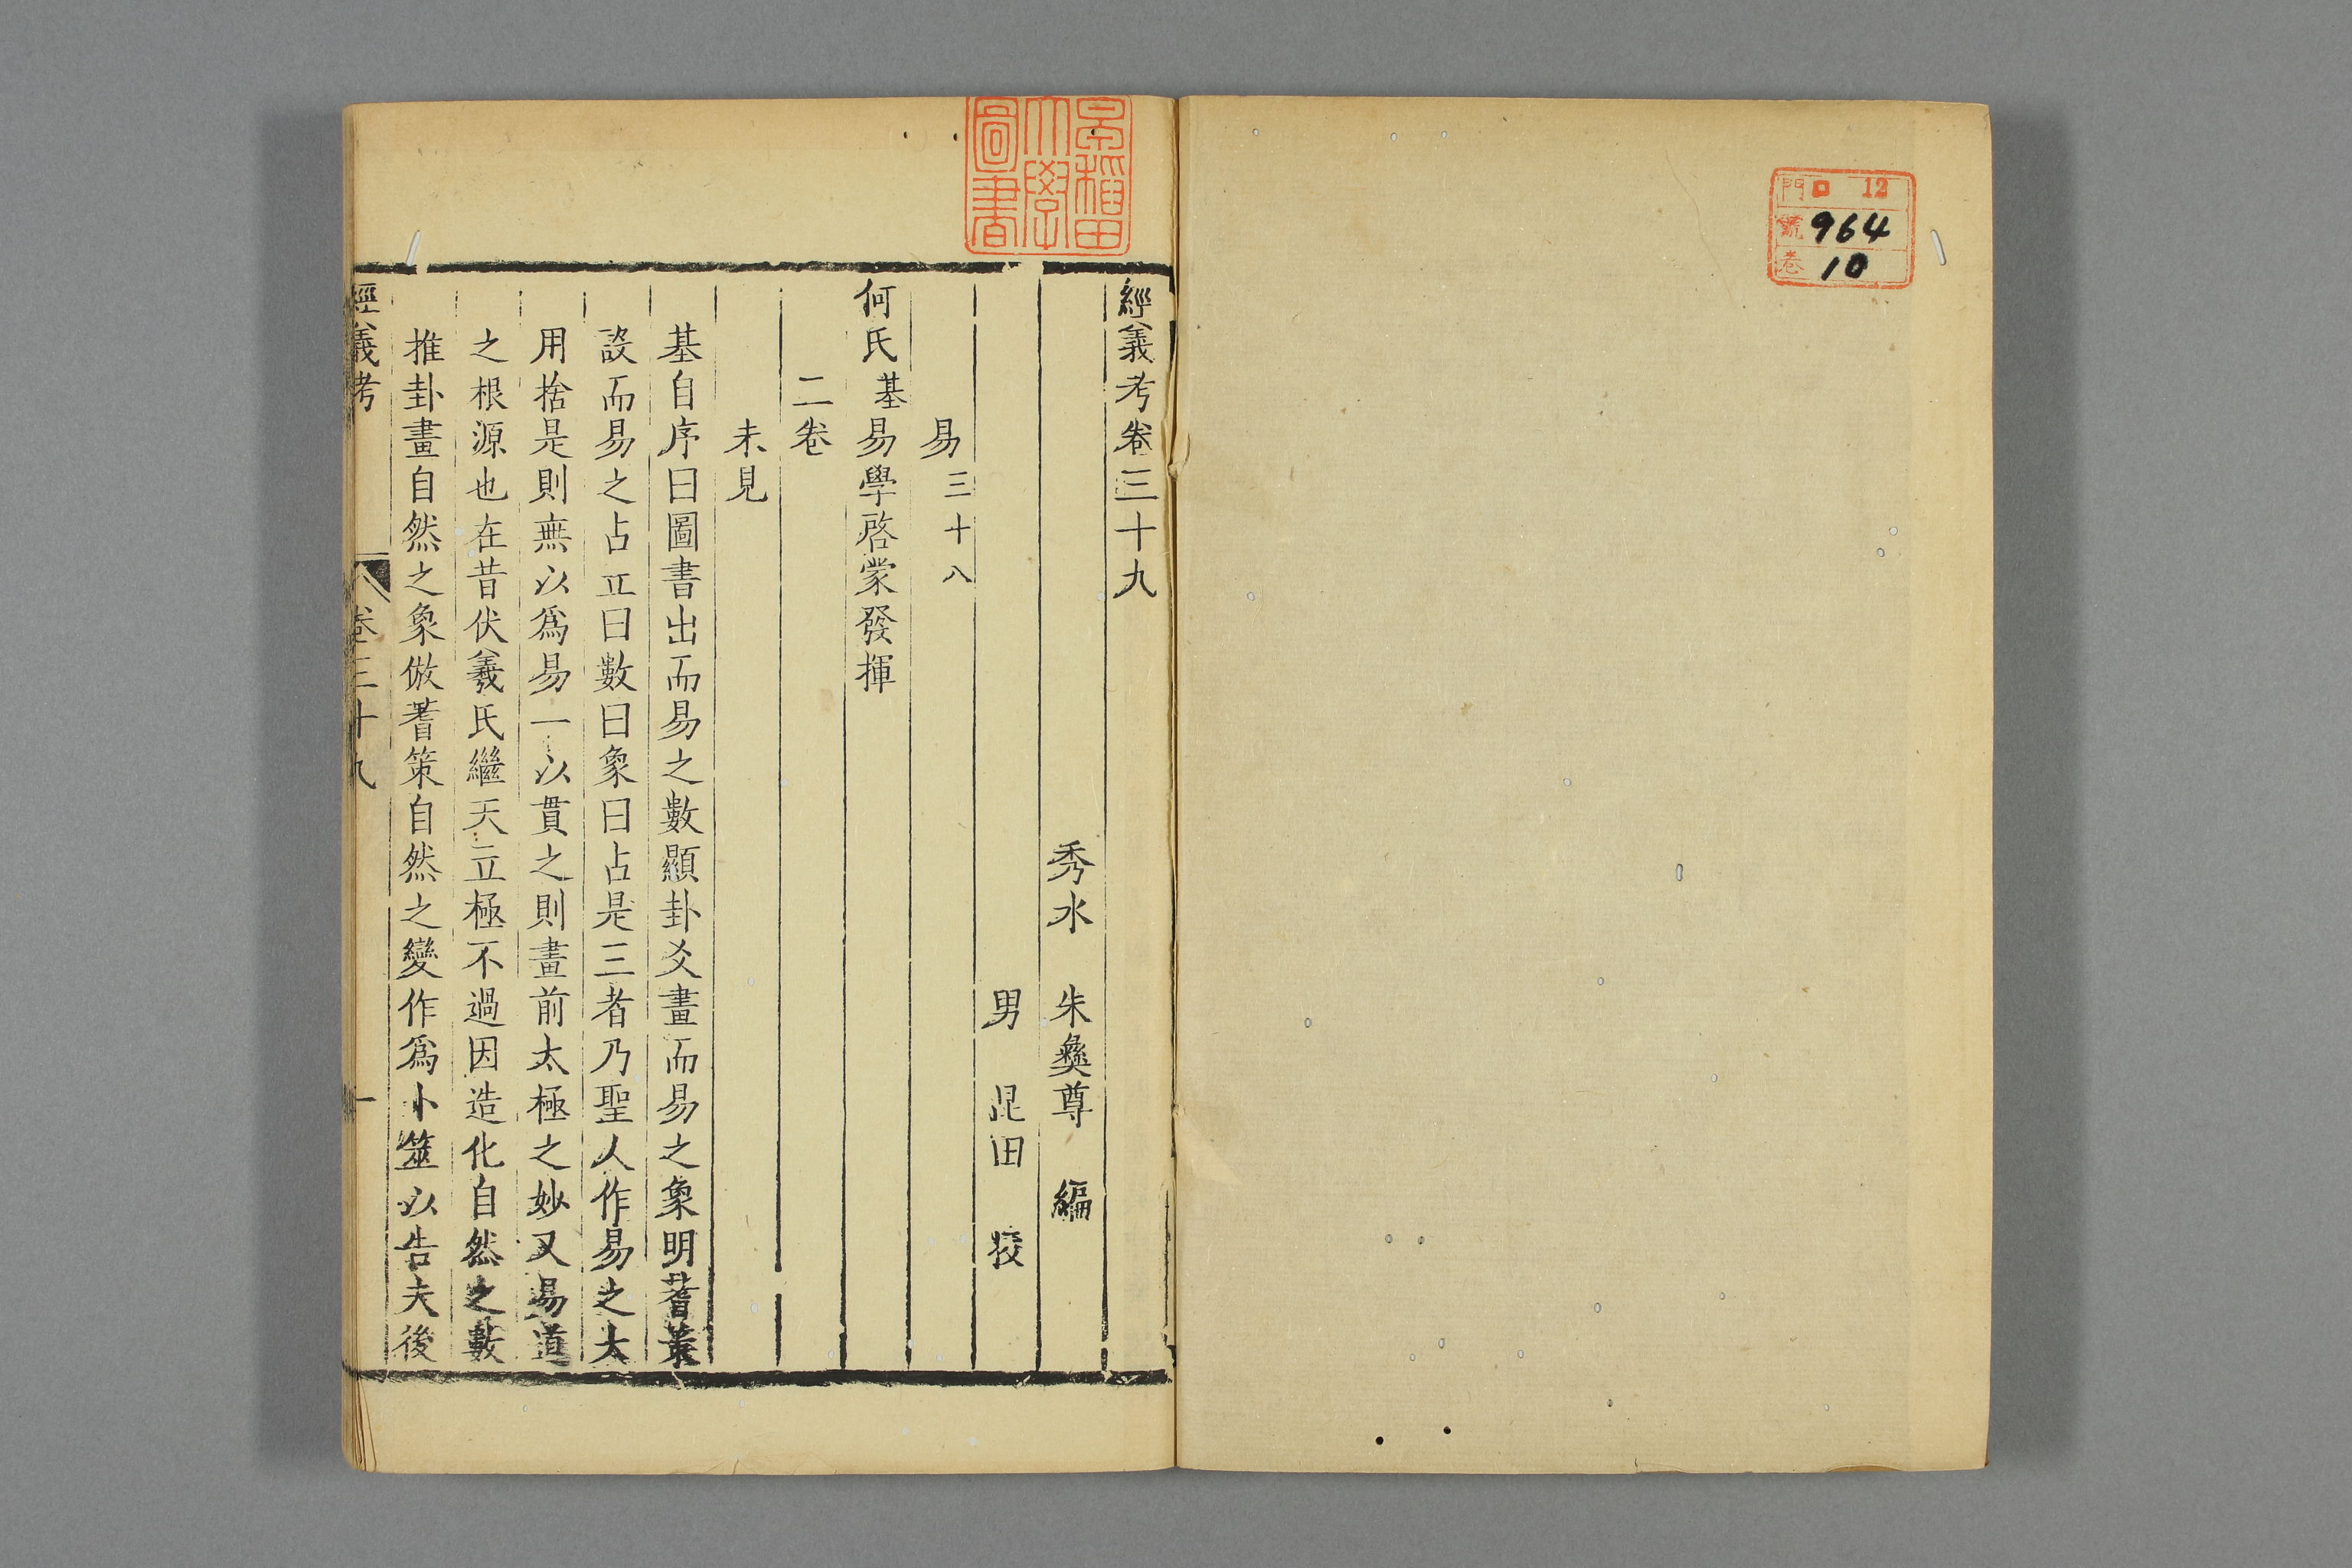 門 ロ 12
號 964
卷 10
早稻田大學圖書
經義考卷三十九
秀水 朱彝尊 編
男 昆田 挍
易三十八
何氏基易學啓蒙發揮
二卷
未見
基自序曰圖書出而易之數顯卦爻畫而易之象明蓍策
設而易之占立曰數曰象曰占是三者乃聖人作易之大
用捨是則無以爲易一以貫之則畫前太極之妙又易道
之根源也在昔伏羲氏繼天立極不過因造化自然之數
推卦畫自然之象倣蓍策自然之變作爲卜筮以告夫後
經義考 卷三十九 一